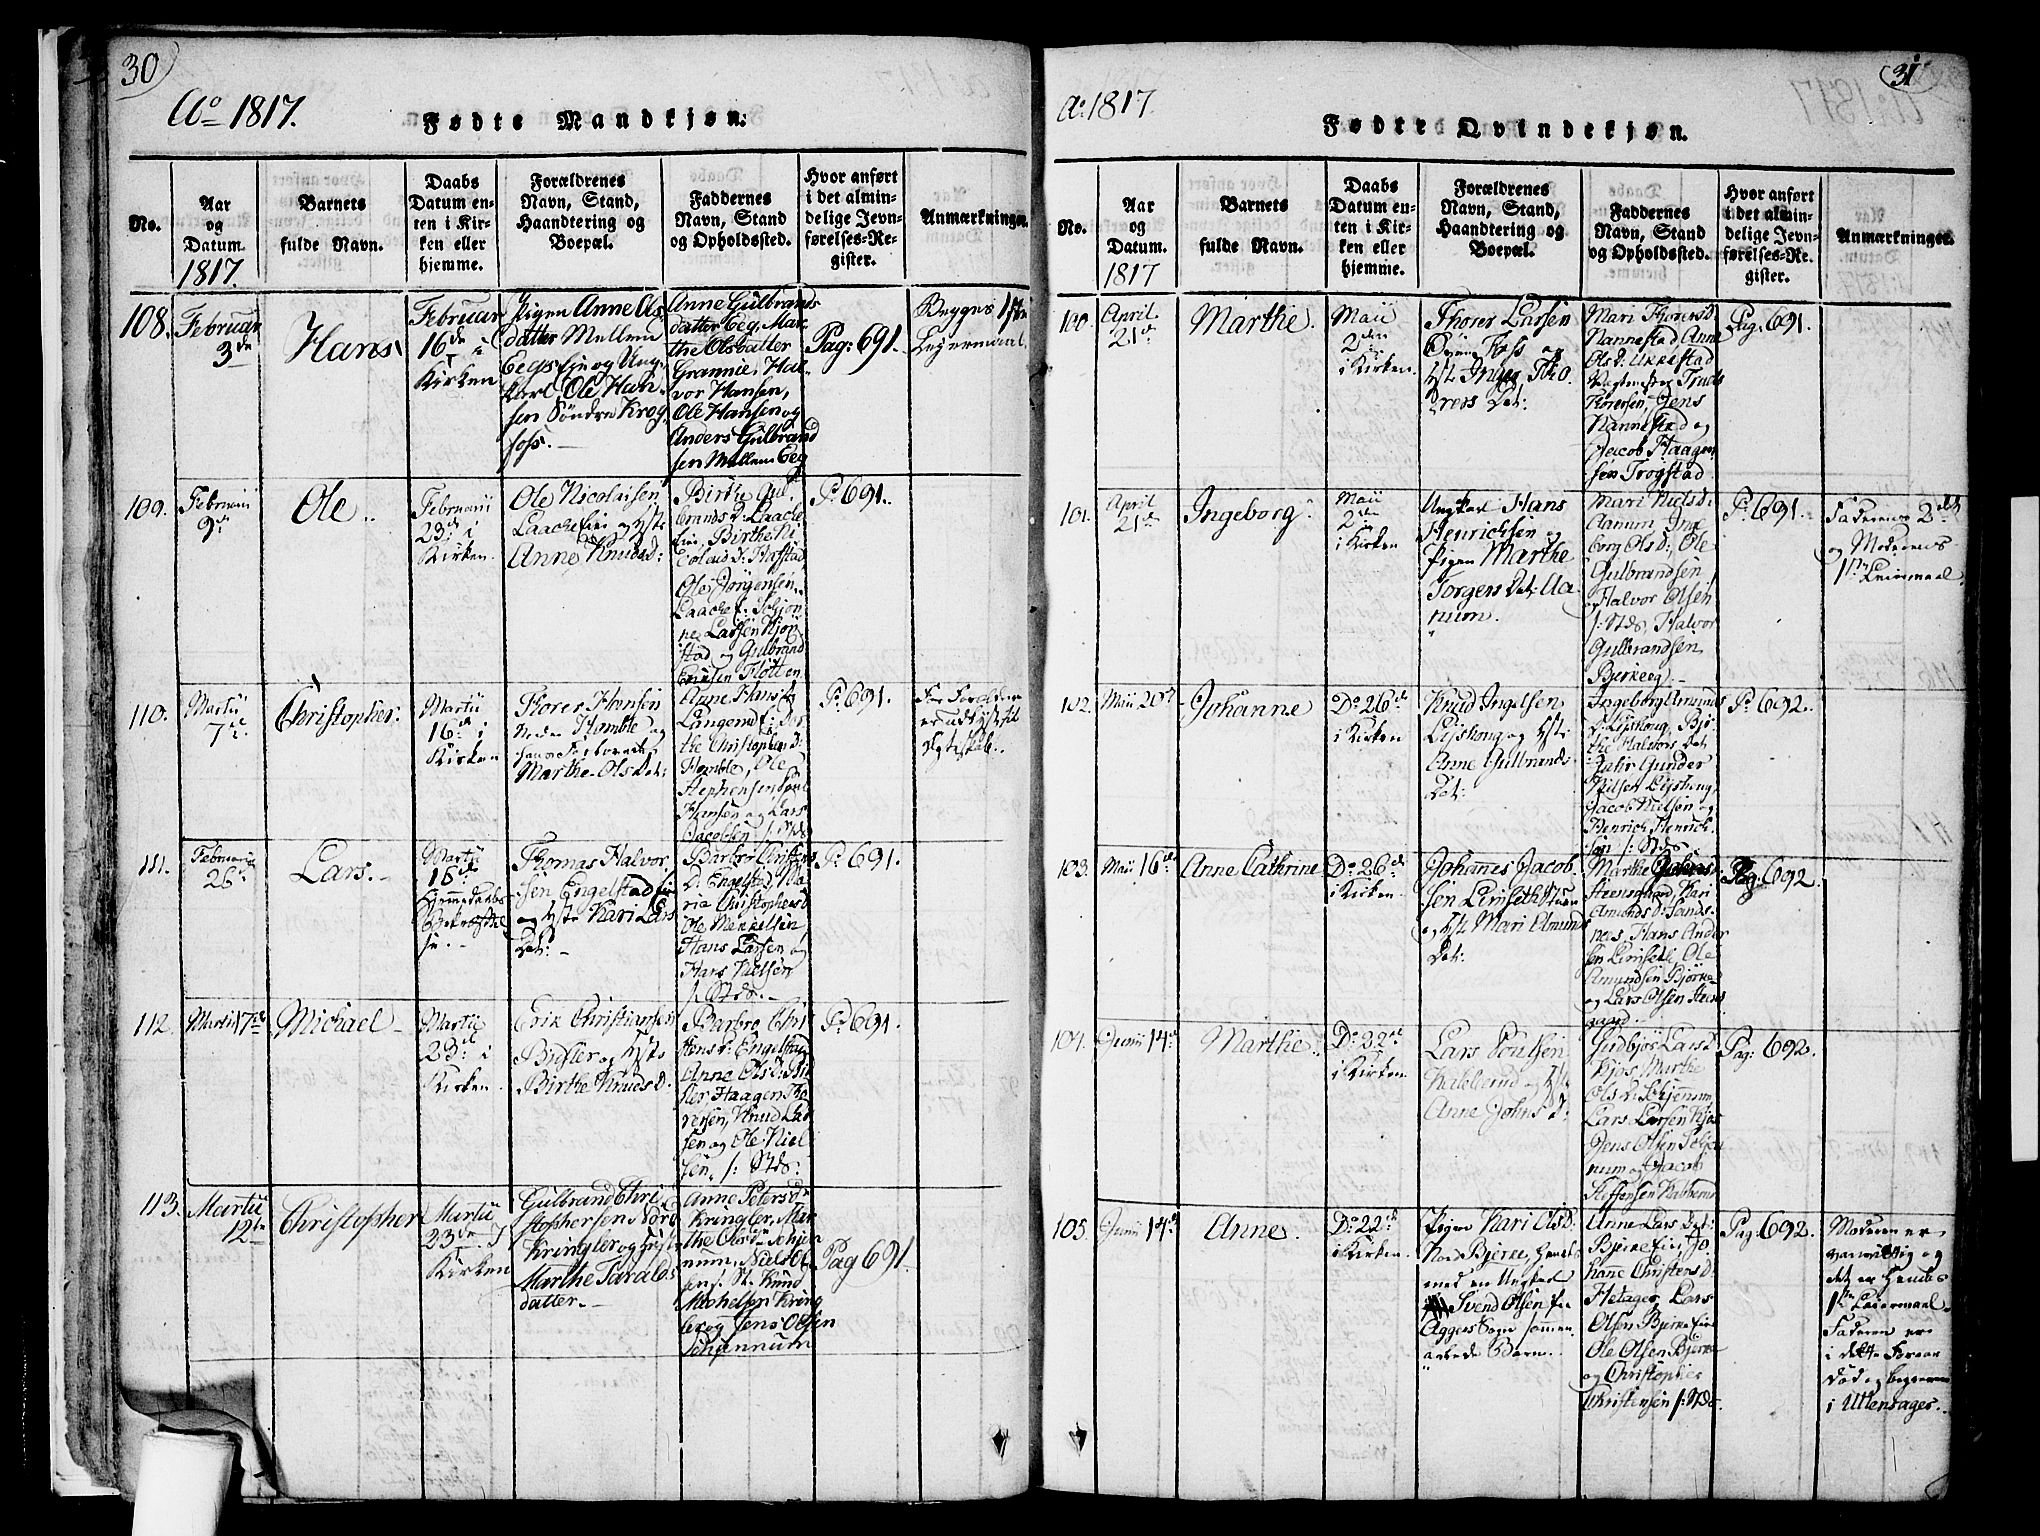 30
Ao 1817.
Fødte Mandkjøn.
No.
Aar
og
Datum.
1817.
Barnets
fulde Navn.
Daabs
Datum en-
ten i Kir-
ken eller
hjemme.
Forældrenes
Navn, Stand,
Haandtering og
Boepæl.
Faddernes
Navn, Stand
og Opholdssted.
Hvor anført
i det almin-
delige Jevn-
førelses-Re-
gister.
Anmærkninger.
108.
Februar
3de
Hans
Februar
16de i
Kirken
Pigen Anne Ols
datter Mellem
Eegs Eie og Ung-
karl Ole Han-
sen Söndre Krog-
foss.
Anne Gulbrands
datter Eeg, Mar-
the Olsdatter
Grannie, Hal-
vor Hansen,
Ole Hansen og
Anders Gulbrand
sen Mellem Eeg
Pag: 691.
Begges 1ste
Leiermaal.
109.
Februarii
9de
Ole
Februarii
23de i
Kirken.
Ole Nicolaisen
Laache Eie og Hste
Anne Knudsd:
Birthe Gul-
brands D: Laache
Eie, Birthe Ni
colaid: Hafstad
Ole Jörgensen
Laache E:
Lars Larsen Kjön-
stad og Gulbrand
Eriksen Flotten
P: 691.
110.
Martii
7de
Christopher.
Martii
16de i
Kirken
Thorer Hansen
Neden Homble og
hans Festemoe
Marthe Ols Det:
Anne Hans D
Langerud E: Mar-
the Christophersd:
Homble, Ole
Stephensen Poul
Hansen og Lars
Jacobsen /: Stds
P: 691.
For Forældrene
er udlyst til
Ægteskab.
111.
Februarii
26de
Lars.
Martii
16de
Hjemmedaabs
Bekræftel-
se.
Thomas Halvor
sen Engelstad Eie
og Hste Kari Lars
Det:
Barbro Christens
D: Engelstad, Ma-
ria Christophersd
Ole Mikkelsen,
Hans Larsen og
Hans Nielsen
/: Stds.
P: 691.
112.
Martii 17de
Michael
Martii
23de i
Kirken.
Erik Christiansen
Bidsler og Hste
Birthe Knudsd.
Barbro Chri
stensd: Engelstad
Anne Olsd: Bid
sler Haagen Tho
rersen, Knud Lar
sen og Ole Niel
sen, /: Stds:
P: 691.
113.
Martii
12te
Christopher
Martii
23de i
Kirken
Gulbrand Chri
stophersen Nord
Kringler og Hste
Marthe Taralds
datter.
Anne Petersd:
Kringler, Mar
the Olsd: Schjen
num, Niels Ol
sen /: St. Knud
Michelsen Kring
ler og Jens Olsen
Schjennum
Pag 691
31
Ao 1817.
Fødte Qvindekjøn.
No.
Aar
og
Datum.
1817
Barnets
fulde Navn.
Daabs
Datum en-
ten i Kir-
ken eller
hjemme.
Forældrenes
Navn, Stand,
Haandtering og
Boepæl.
Faddernes
Navn, Stand
og Opholdssted.
Hvor anført
i det almin-
delige Jevn-
førelses-Re-
gister.
Anmærkninger.
100.
April
21de
Marthe.
Maii
2den
i Kirken.
Thorer Larsen
Foss og
Hste Inger Tho-
rers Det:
Mari Thorersd
Nannestad Anne
Olsd. Ukkestad
Truls
Thorersen, Jens
Nannestad og
Jacob Haagen
sen Trogstad.
Pag. 691.
101.
April
21de
Ingeborg.
Maii
2den
i Kirken
Ungkar Hans
Henrichsen og
Pigen Marthe
Torgers Det: Aa-
mum.
Mari Nielsd:
Aamum, Inge
borg Olsd: Ole
Gulbrandsen
og Halvor Olsen
/: Stds, Halvor
Gulbrandsen
Bjerkeeg.
P: 691.
Faderens 2det
og Moderens
1ste Leiermaal.
102.
Maii 20de
Johanne
Do 26de
i Kirken
Knud Ingelsen
Lejskoug og Hste
Anne Gulbrands
Det:
Ingeborg Amunds
D: Lejskoug, Bir-
the Halvors Det
Gunder
Nilsen Lejskoug,
Jacob Nielsen og
Henrich Henrich-
sen /: Stds
P: 692.
103.
Maii 16de
Anne Cathrine
Do 26de
i Kirken.
Johannes Jacob
sen Limseth Stuen
og Hste Mari Amunds
Det:
Marthe
Steensgaard, Kari
Amunds D: Sands-
næs, Hans Ander
sen Limseth, Ole
Amundsen Bjørke
og Lars Olsen Steens
gaard.
Pag. 692.
104.
Junii 14de
Marthe.
Do 22de
i Kirken.
Lars Poulsen
Kalberud og Hste
Anne Johns D:
Gudbjør Larsd
Kjos, Marthe
Ols D: Schjennum,
Lars Larsen Kjos
Jens Olsen Schjen
num og Jacob
Steffensen Kabberud
Pag: 692.
105.
Junii 14de
Anne.
Do 22de
i Kirken.
Pigen Kari Olsd:
Bjerke, Hendes
med en Ungkarl
Svend Olsen fra
Aggers Sogn sammen
avlede Barn.
Anne Lars Det:
Bjerke Eie, Jo
hane Christens D:
Hetager, Lars
Olsen Bjerke Eie
Ole Olsen Bjerke
og Christopher
Christensen /: Stds.
Pag: 692.
Moderen er
vanvittig og
det er Hendes
1ste Leiermaal
Faderen er
i dette Foraar
død og begraven
i Ullensager.